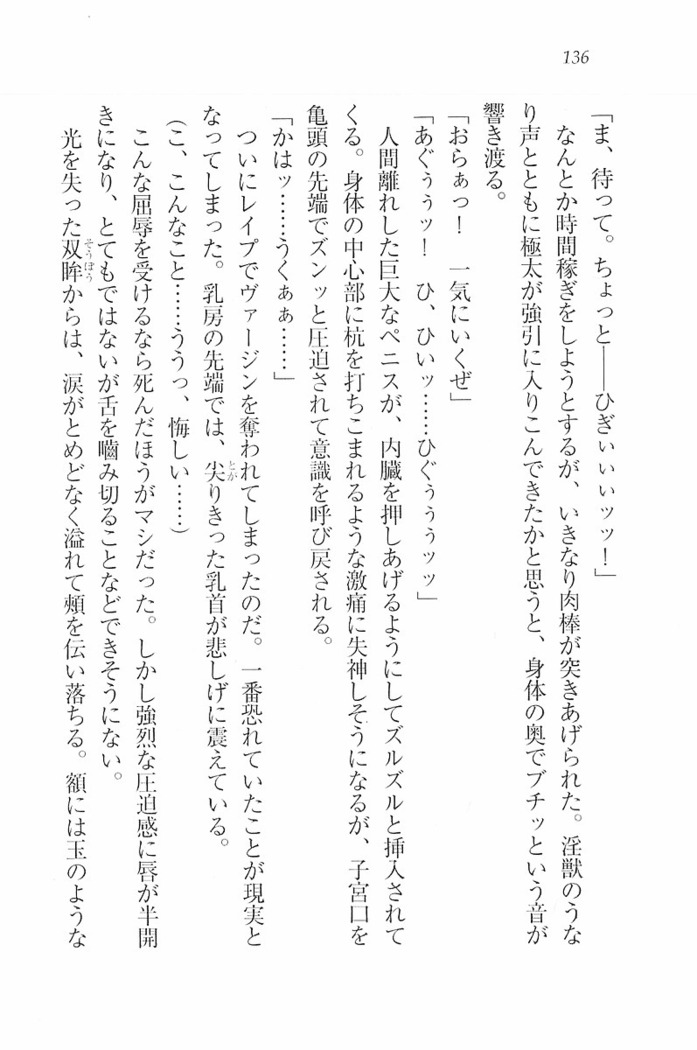 136
「ま、待って。ちょっと――ひぎぃぃぃッッ！」
　なんとか時間稼ぎをしようとするが、いきなり肉棒が突きあげられた。淫獣のうな
り声とともに極太が強引に入りこんできたかと思うと、身体の奥でブチッという音が
響き渡る。
「おらぁっ！　一気にいくぜ」
「あぐぅぅッ！　ひ、ひいッ……ひぐぅぅぅッッ」
　人間離れした巨大なペニスが、内臓を押しあげるようにしてズルズルと挿入されて
くる。身体の中心部に杭を打ちこまれるような激痛に失神しそうになるが、子宮口を
亀頭の先端でズンッと圧迫されて意識を呼び戻される。
「かはッ……うくぁぁ……」
　ついにレイプでヴァージンを奪われてしまったのだ。一番恐れていたことが現実と
なってしまった。乳房の先端では、尖りきった乳首が悲しげに震えている。
（こ、こんなこと……ううっ、悔しい……）
　こんな屈辱を受けるなら死んだほうがマシだった。しかし強烈な圧迫感に唇が半開
きになり、とてもではないが舌を嚙み切ることなどできそうにない。
　光を失った双眸からは、涙がとめどなく溢れて頰を伝い落ちる。額には玉のような